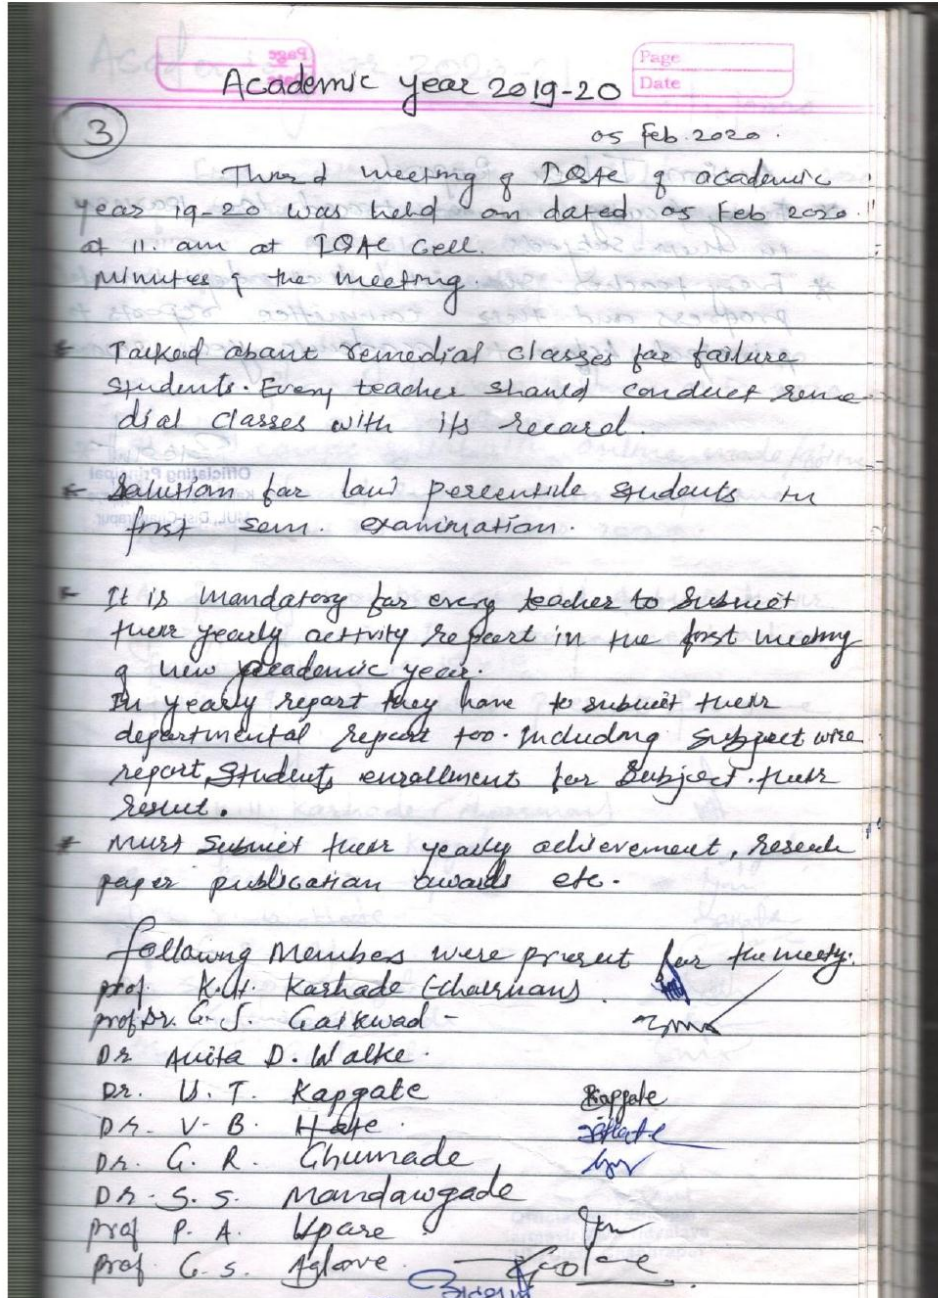 Page
Date
Academic year 2019-20
3
05 Feb. 2020.
Third meeting of IQAC of academic
year 19-20 was held on dated 05 Feb 2020.
at 11. am at IQAC Cell.
Minutes of the meeting.
* Talked about remedial classes for failure
students. Every teacher should conduct reme-
dial classes with its record.
* Solution for low percentile students in
first sem. examination.
* It is mandatory for every teacher to submit
their yearly activity report in the first meeting
of new academic year.
In yearly report they have to submit their
departmental report too. Including Subject wise
report, Students enrollment for Subject. their
result.
* Must submit their yearly achievement, Reseach
paper publication awards etc.
Following Members were present for the meetg:
prof. K.H. Karhade (chairmans)
prof Dr. G. S. Gaikwad -
Dr Anita D. Walke.
Dr. U. T. Kapgate Kapgate
Dr. V. B. Hate.
Dr. G. R. Ghumade
Dr. S. S. Mandawgade
prof P. A. Upare
prof. G. S. Aglave